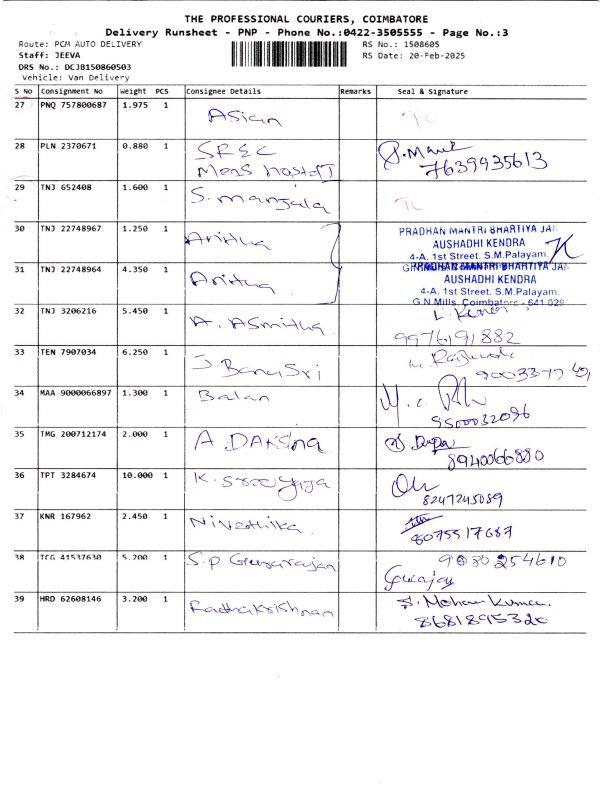 THE PROFESSIONAL COURIERS, COIMBATORE
Delivery Runsheet - PNP - Phone No.:0422-3505555 - Page No.:3
Route: PCM AUTO DELIVERY RS No.: 1508605
Staff: JEEVA RS Date: 20-Feb-2025
DRS No.: DCJB150860503
Vehicle: Van Delivery
S No Consignment No Weight PCS Consignee Details Remarks Seal & Signature
27 PNQ 757800687 1.975 1 Asian
28 PLN 2370671 0.880 1 SREC
Mens hostel
7639935613
29 TNJ 652408 1.600 1 S. manjula
30 TNJ 22748967 1.250 1 Anitha PRADHAN MANTRI BHARTIYA JAN
AUSHADHI KENDRA
4-A. 1st Street, S.M.Palayam,
31 TNJ 22748964 4.350 1 Anitha PRADHAN MANTRI BHARTIYA JAN
AUSHADHI KENDRA
4-A. 1st Street, S.M.Palayam,
G.N.Mills, Coimbatore - 641 029
32 TNJ 3206216 5.450 1 A. ASmitha
9976191882
33 TEN 7907034 6.250 1 S. BanuSri
34 MAA 9000066897 1.300 1 Balan
9500032096
35 TMG 200712174 2.000 1 A DAKSHA
8940066880
36 TPT 3284674 10.000 1 K.
8247245089
37 KNR 167962 2.450 1 Nivethika
8075517687
38 TCG 41537630 5.200 1 S.P Gururajan 9080254610
Gururajan
39 HRD 62608146 3.200 1 Radhakrishnan S. Mohan Kumar.
8681895320